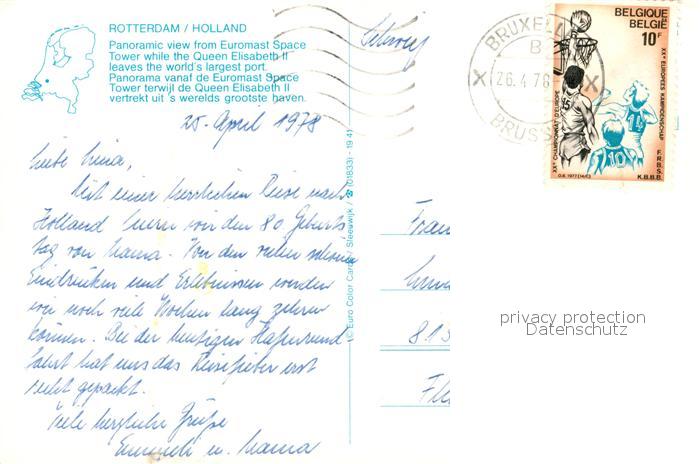 ROTTERDAM / HOLLAND
Panoramic view from Euromast Space
Tower while the Queen Elisabeth II
leaves the world's largest port.
Panorama vanaf de Euromast Space
Tower terwijl de Queen Elisabeth II
vertrekt uit 's werelds grootste haven.
25. April 1978
Liebe
Mit einer herrlichen Reise nach
Holland feiern wir den 80 Geburts
tag von Mama. Von den vielen schönen
Eindrücken und Erlebnissen werden
wir noch viele Wochen lang zehren
können. Bei der heutigen Hafenrund
fahrt hat uns das Reisefieber erst
recht gepackt.
Viele herzliche Grüße
u. Mama
Euro Color Cards / Sleeswijk / ☎ (01833) - 19 41
Schweiz
BRUXELL
B
X 26. 4. 78 X
BRUSS
BELGIQUE
BELGIË
10F
XXe CHAMPIONNAT D'EUROPE
XXe EUROPEES KAMPIOENSCHAP
15
14
10
F.R.B.B.
K.B.B.B.
Frau
813
privacy protection
Datenschutz